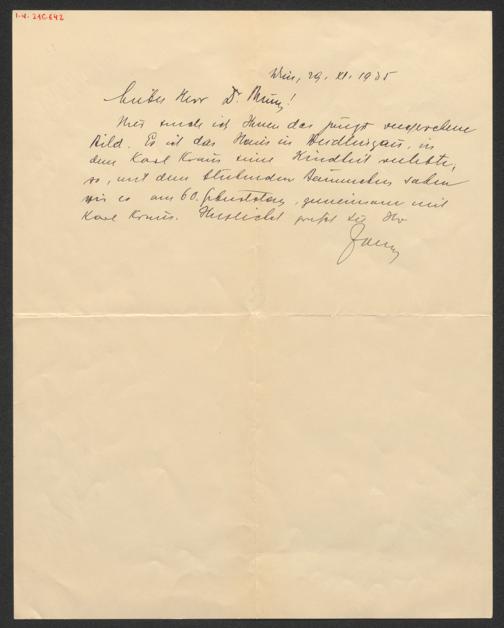 I.N. 216.642
Wien, 29. XI. 1935
Lieber Herr Dr. Münz!
Hier sende ich Ihnen das jüngst versprochene
Bild. Es ist das Haus in Weidlingau, in
dem Karl Kraus seine Kindheit verlebte,
so, mit dem sterbenden Bäumchen sahen
wir es am 60. Geburtstag, gemeinsam mit
Karl Kraus. Herzlichst grüßt Sie Ihr